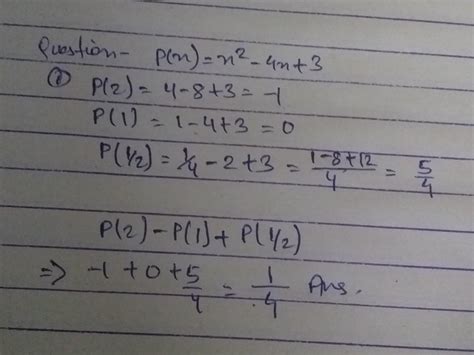 Question- P(x)=x²-4x+3
① P(2) = 4-8+3=-1
P(1) = 1-4+3 = 0
P(1/2)= 1/4 - 2+3 = (1-8+12)/4 = 5/4
P(2) - P(1) + P(1/2)
⇒ -1 + 0 + 5/4 = 1/4 Ans.